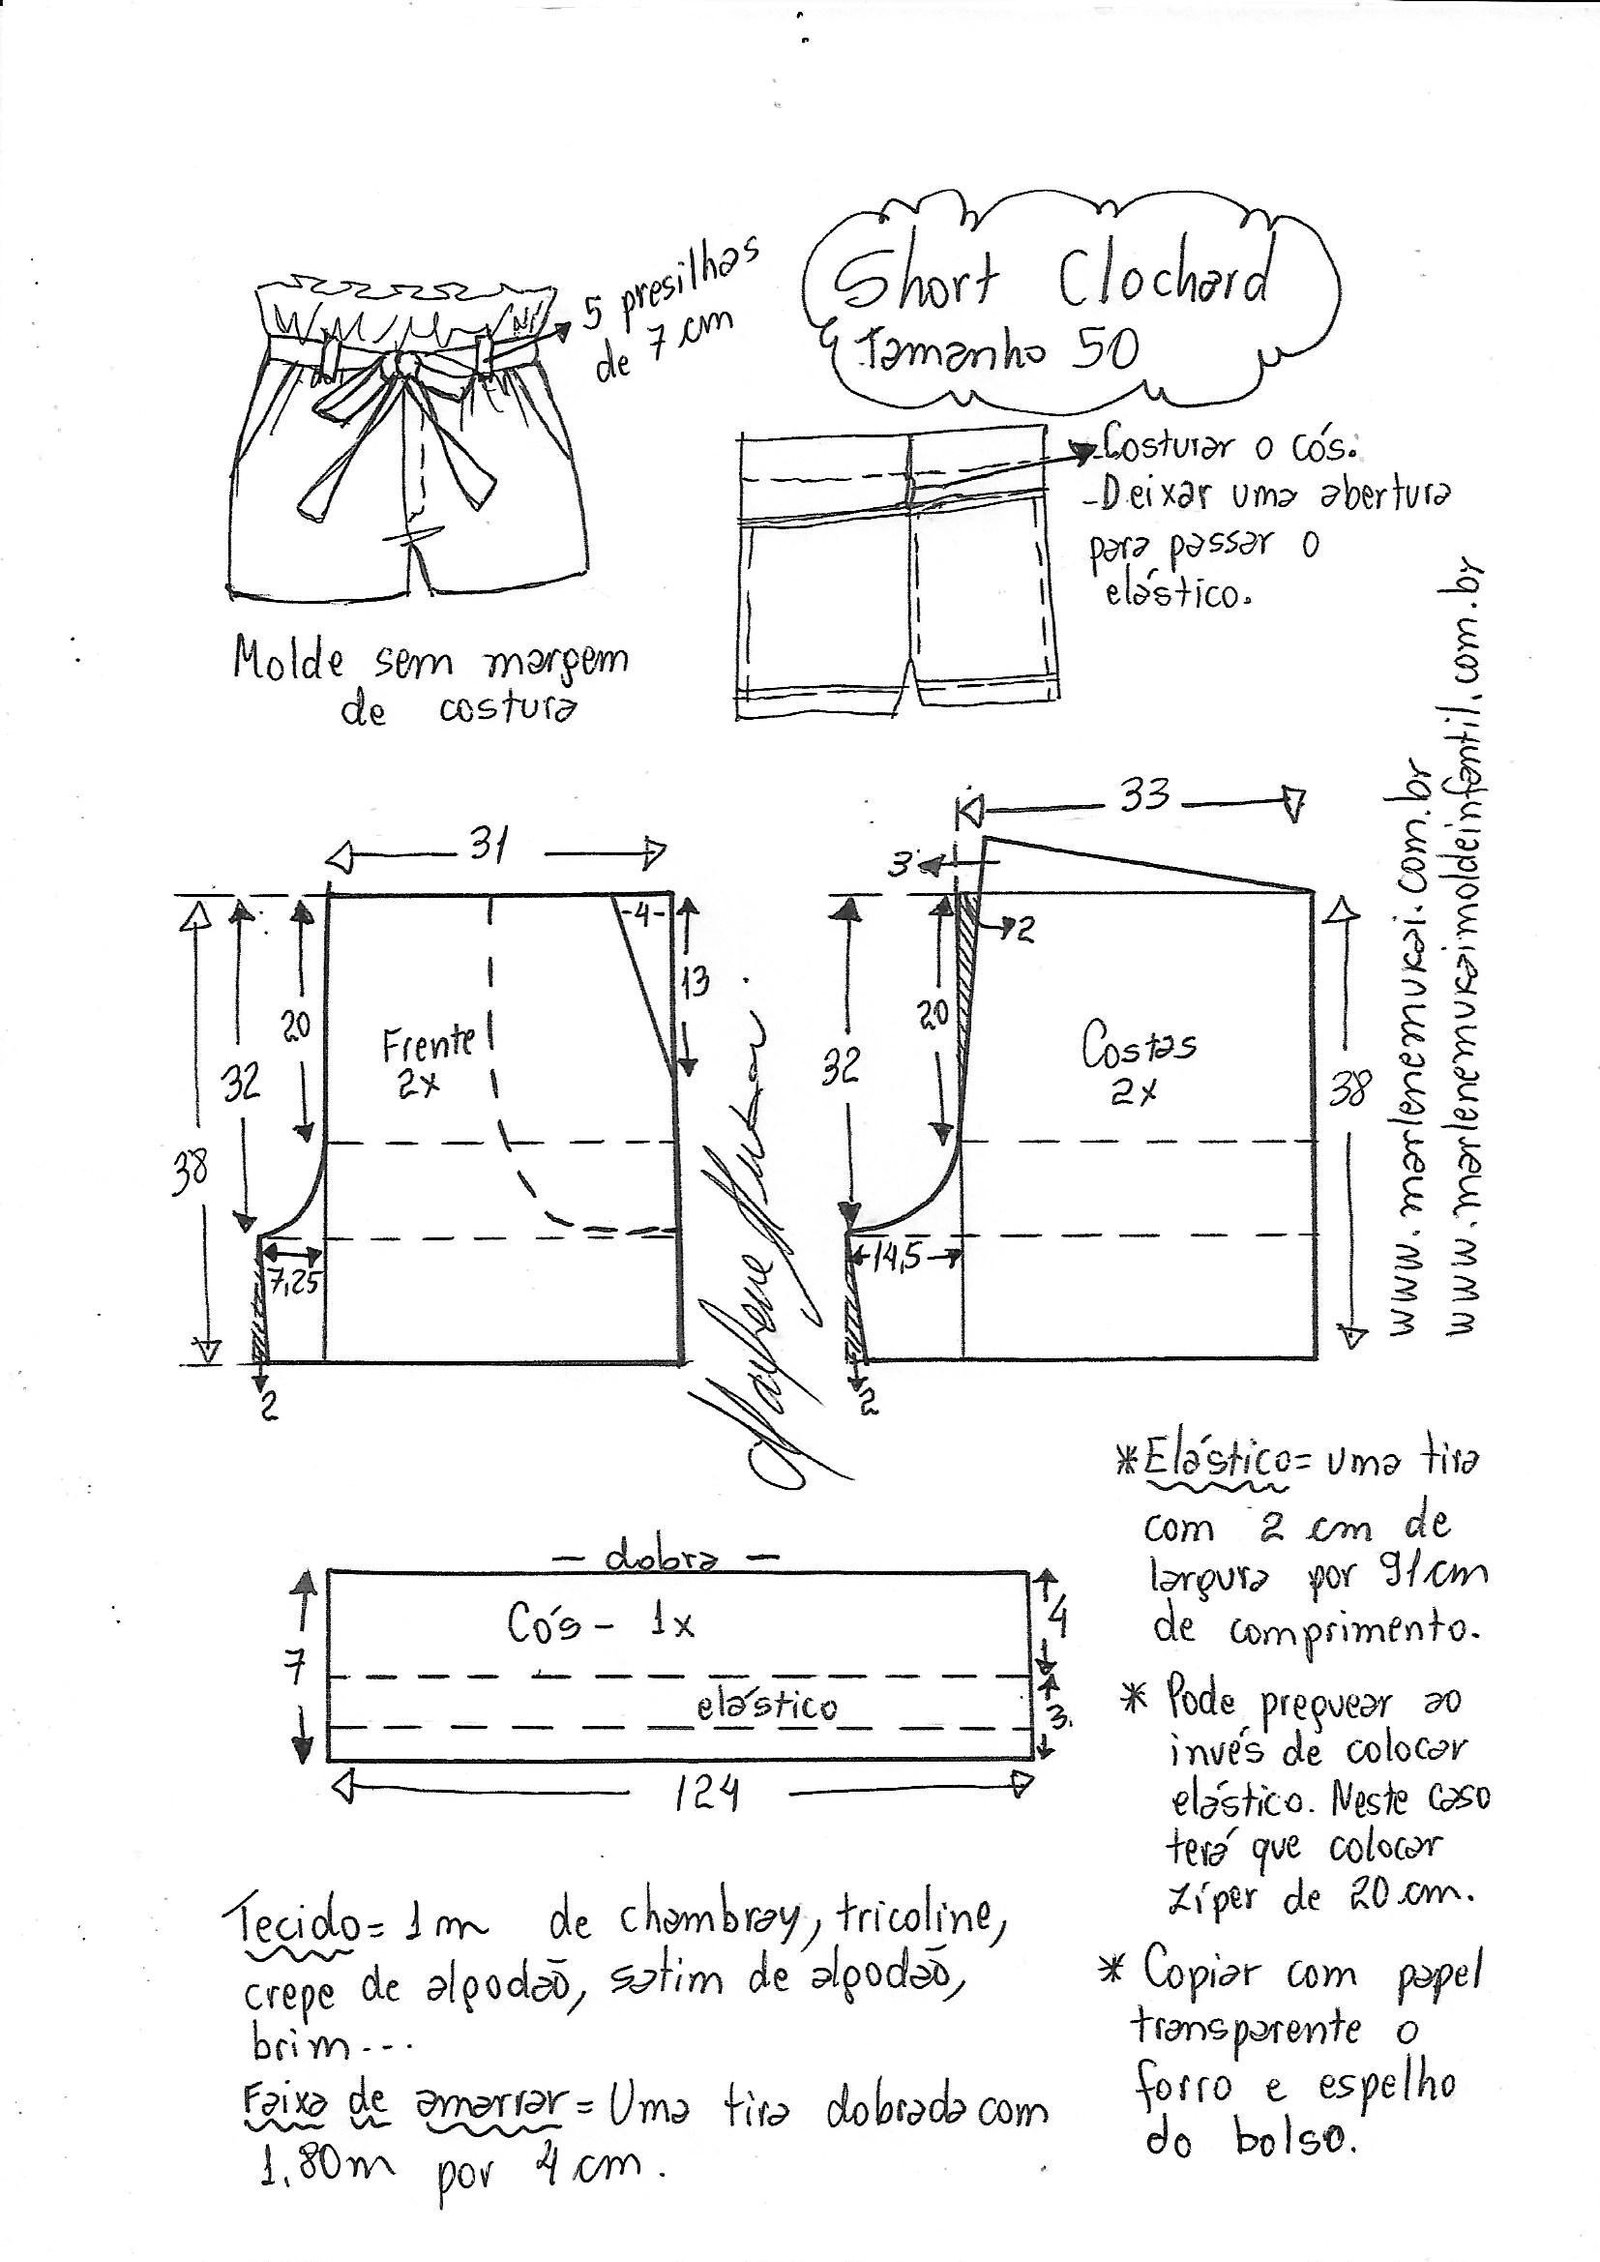 5 presilhas
de 7 cm
Short Clochard
Tamanho 50
-Costurar o cós.
-Deixar uma abertura
para passar o
elástico.
Molde sem margem
de costura
www.marlenemukai.com.br
www.marlenemukaimoldeinfantil.com.br
31
4
13
20
32
38
Frente
2x
7,25
2
33
3
2
20
32
38
Costas
2x
14,5
2
Marlene Mukai
- dobra -
Cós - 1x
7
4
elástico
3
124
*Elástico= uma tira
com 2 cm de
largura por 91cm
de comprimento.
* Pode preguear ao
invés de colocar
elástico. Neste caso
terá que colocar
zíper de 20 cm.
* Copiar com papel
transparente o
forro e espelho
do bolso.
Tecido= 1m de chambray, tricoline,
crepe de algodão, satim de algodão,
brim...
Faixa de amarrar = Uma tira dobrada com
1,80m por 4 cm.